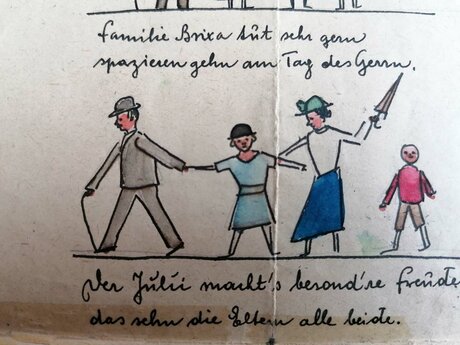 Familie Brixa tüt sehr gern
spazieren gehn am Tag des Herrn.
Der Julii macht's besond're Freude
das sehn die Eltern alle beide.